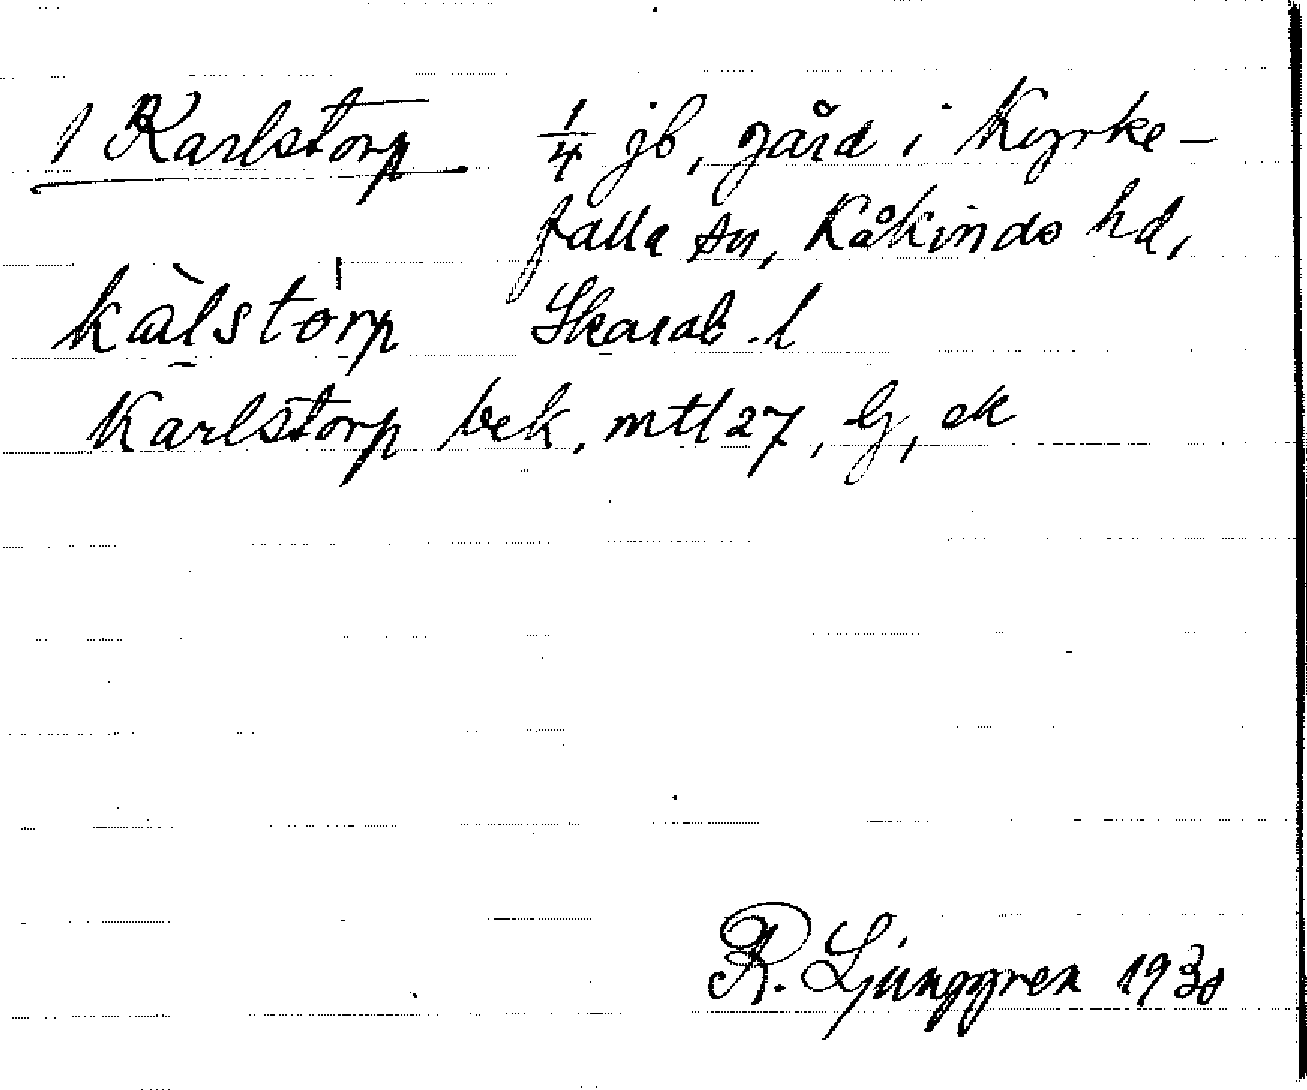 1 Karlstorp 1/4 jb, gård i Kyrke-
falla sn, Kåkinds hd,
kàlstórp Skarab. l
Karlstorp bek. mtl 27, G, ek
R. Ljunggren 1930